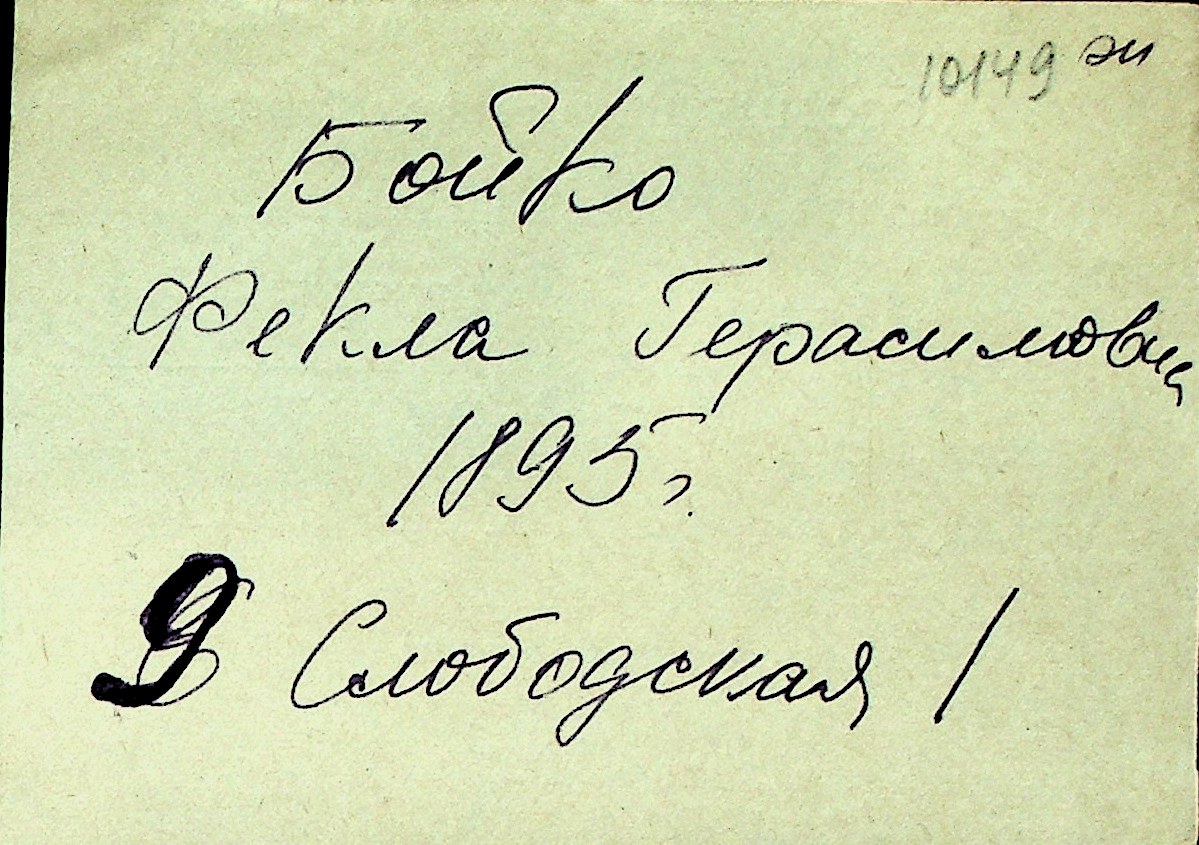 10149 эи
Бойко
Фекла Герасимовна
1895 г.
9 Слободская 1